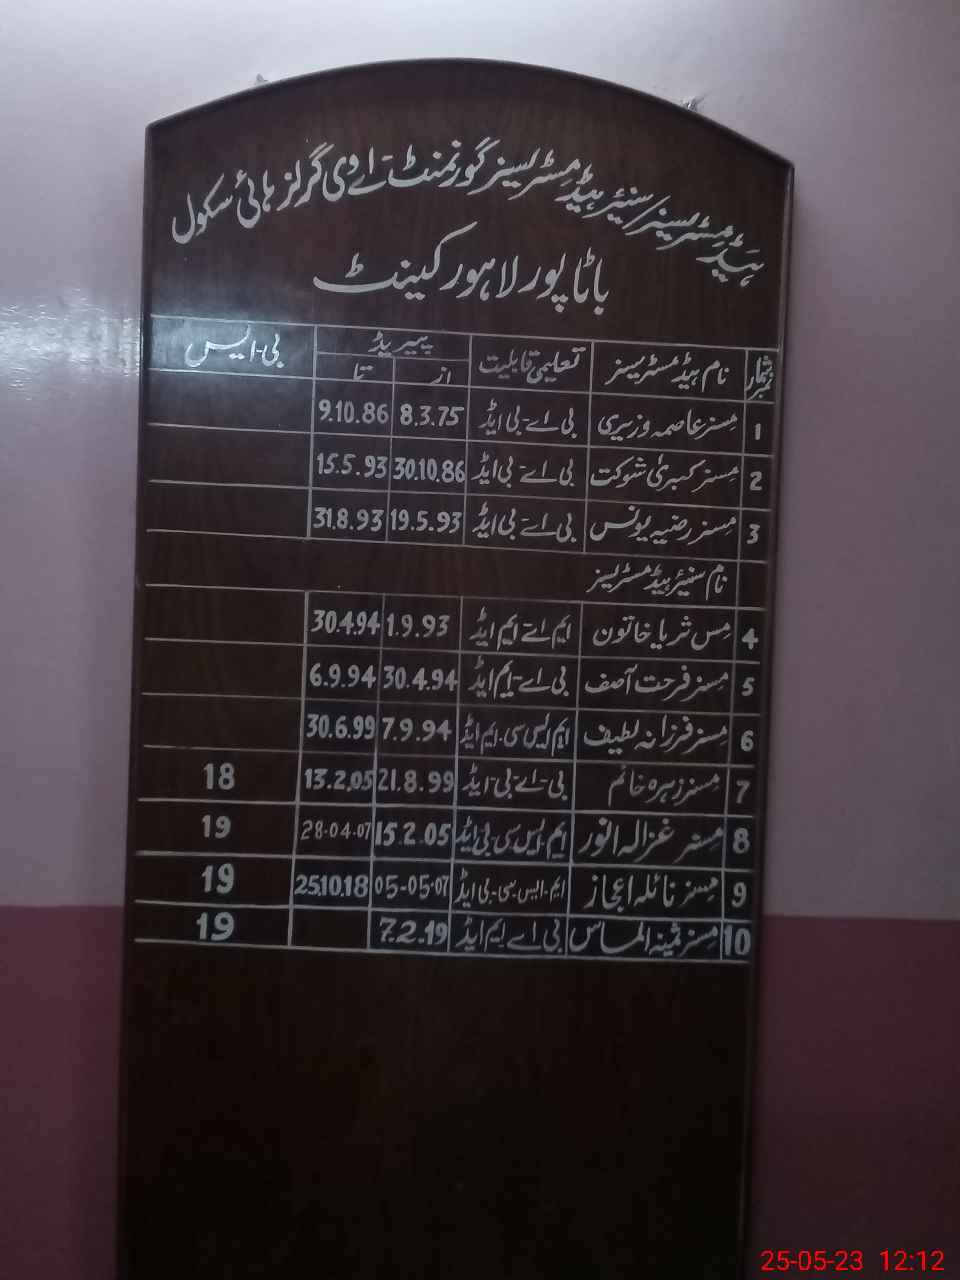 ہیڈ مسٹریسز/سنیئر ہیڈ مسٹریسز گورنمنٹ-اے وی گرلز ہائی سکول
باٹا پور لاہور کینٹ
نمبر شمار نام ہیڈ مسٹریسز تعلیمی قابلیت پیریڈ بی-ایس
از تا
1 مسز عاصمہ وزیری بی اے-بی ایڈ 8.3.75 9.10.86
2 مسز کبریٰ شوکت بی اے-بی ایڈ 30.10.86 15.5.93
3 مسز رضیہ یونس بی اے-بی ایڈ 19.5.93 31.8.93
نام سنیئر ہیڈ مسٹریسز
4 مس ثریا خاتون ایم اے-ایم ایڈ 1.9.93 30.4.94
5 مسز فرحت آصف بی اے-ایم ایڈ 30.4.94 6.9.94
6 مسز فرزانہ لطیف ایم ایس سی-ایم ایڈ 7.9.94 30.6.99
7 مسز زہرہ خانم بی-اے-بی-ایڈ 21.8.99 13.2.05 18
8 مسز غزالہ انور ایم ایس سی-بی ایڈ 15.2.05 28-04-07 19
9 مسز نائلہ اعجاز ایم-ایس-سی-بی ایڈ 05-05-07 25.10.18 19
10 مسز ثمینہ الماس بی اے ایم ایڈ 7.2.19 19
25-05-23 12:12